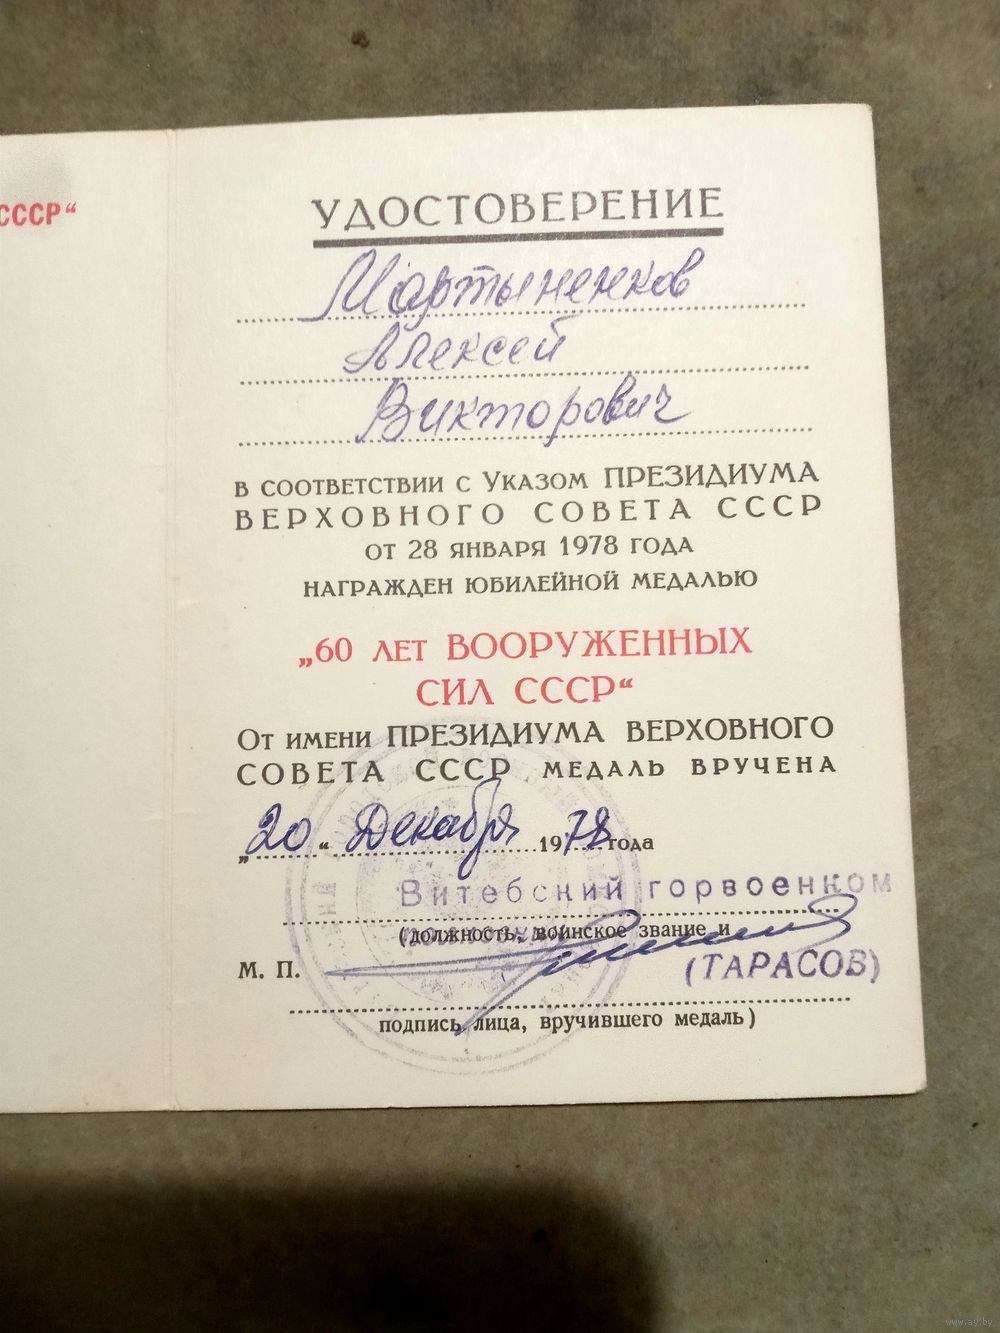 СССР“
УДОСТОВЕРЕНИЕ
Мартыненков
Алексей
Викторович
В СООТВЕТСТВИИ С УКАЗОМ ПРЕЗИДИУМА
ВЕРХОВНОГО СОВЕТА СССР
ОТ 28 ЯНВАРЯ 1978 ГОДА
НАГРАЖДЕН ЮБИЛЕЙНОЙ МЕДАЛЬЮ
„60 ЛЕТ ВООРУЖЕННЫХ
СИЛ СССР“
ОТ ИМЕНИ ПРЕЗИДИУМА ВЕРХОВНОГО
СОВЕТА СССР МЕДАЛЬ ВРУЧЕНА
„20“ Декабря 1978 года
Витебский горвоенком
(должность, воинское звание и
М. П.
(ТАРАСОВ)
подпись лица, вручившего медаль)
www.ay.by